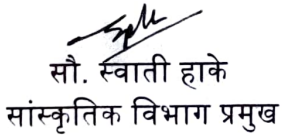 सौ. स्वाती हाके
सांस्कृतिक विभाग प्रमुख